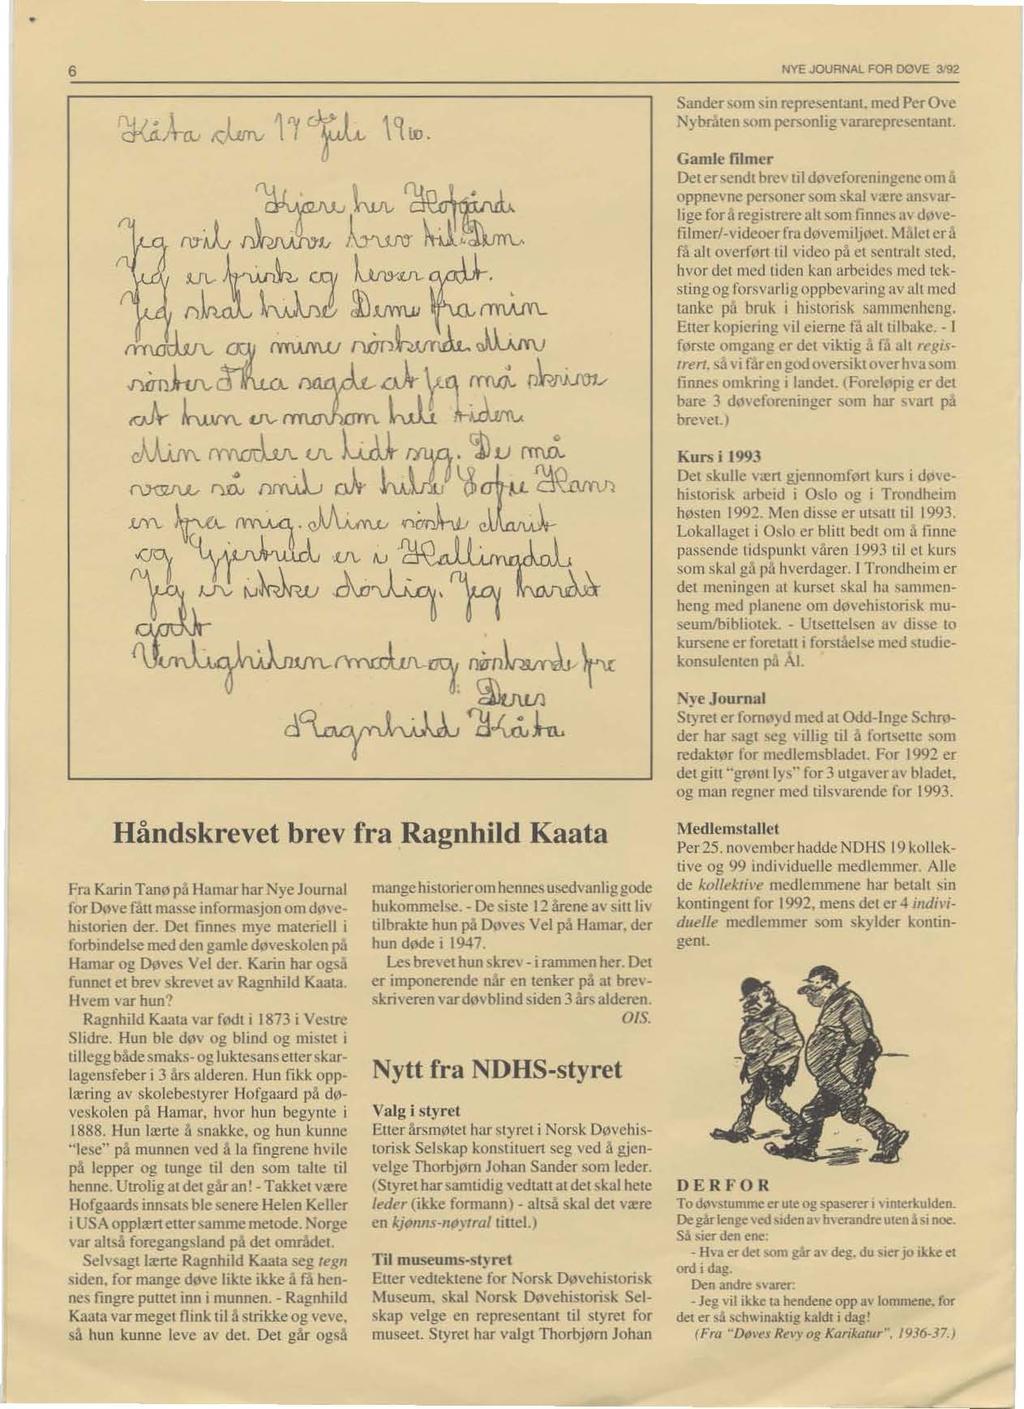 6
NYE JOURNAL FOR DØVE 3/92
Kåta den 17 Juli 19
Kjære her Hofgård
Jeg vil skrive brev til Dem.
Jeg er frisk og lever godt.
Jeg skal hilse Deme fra min
moder og mine sørskende. Min
sørster Thea sagde at jeg må skrive
at hun er morsom hele tiden.
Min moder er lidt syg. De må
være så snil at hilse Sofie Hans
en fra mig. Mine sørstre Marit
og Gjertruid er i Hallingdal.
Jeg er ikke dorlig. Jeg har det
godt
Venlighilsen moder og sørskende fra
Deres
Ragnhild Kåta.
Håndskrevet brev fra Ragnhild Kaata
Fra Karin Tanø på Hamar har Nye Journal
for Døve fått masse informasjon om døve-
historien der. Det finnes mye materiell i
forbindelse med den gamle døveskolen på
Hamar og Døves Vel der. Karin har også
funnet et brev skrevet av Ragnhild Kaata.
Hvem var hun?
Ragnhild Kaata var født i 1873 i Vestre
Slidre. Hun ble døv og blind og mistet i
tillegg både smaks- og luktesans etter skar-
lagensfeber i 3 års alderen. Hun fikk opp-
læring av skolebestyrer Hofgaard på dø-
veskolen på Hamar, hvor hun begynte i
1888. Hun lærte å snakke, og hun kunne
"lese" på munnen ved å la fingrene hvile
på lepper og tunge til den som talte til
henne. Utrolig at det går an! - Takket være
Hofgaards innsats ble senere Helen Keller
i USA opplært etter samme metode. Norge
var altså foregangsland på det området.
Selvsagt lærte Ragnhild Kaata seg tegn
siden, for mange døve likte ikke å få hen-
nes fingre puttet inn i munnen. - Ragnhild
Kaata var meget flink til å strikke og veve,
så hun kunne leve av det. Det går også
mange historier om hennes usedvanlig gode
hukommelse. - De siste 12 årene av sitt liv
tilbrakte hun på Døves Vel på Hamar, der
hun døde i 1947.
Les brevet hun skrev - i rammen her. Det
er imponerende når en tenker på at brev-
skriveren var døvblind siden 3 års alderen.
OIS.
Nytt fra NDHS-styret
Valg i styret
Etter årsmøtet har styret i Norsk Døvehis-
torisk Selskap konstituert seg ved å gjen-
velge Thorbjørn Johan Sander som leder.
(Styret har samtidig vedtatt at det skal hete
leder (ikke formann) - altså skal det være
en kjønns-nøytral tittel.)
Til museums-styret
Etter vedtektene for Norsk Døvehistorisk
Museum, skal Norsk Døvehistorisk Sel-
skap velge en representant til styret for
museet. Styret har valgt Thorbjørn Johan
Sander som sin representant, med Per Ove
Nybråten som personlig vararepresentant.
Gamle filmer
Det er sendt brev til døveforeningene om å
oppnevne personer som skal være ansvar-
lige for å registrere alt som finnes av døve-
filmer/-videoer fra døvemiljøet. Målet er å
få alt overført til video på et sentralt sted,
hvor det med tiden kan arbeides med tek-
sting og forsvarlig oppbevaring av alt med
tanke på bruk i historisk sammenheng.
Etter kopiering vil eierne få alt tilbake. - I
første omgang er det viktig å få alt regis-
trert, så vi får en god oversikt over hva som
finnes omkring i landet. (Foreløpig er det
bare 3 døveforeninger som har svart på
brevet.)
Kurs i 1993
Det skulle vært gjennomført kurs i døve-
historisk arbeid i Oslo og i Trondheim
høsten 1992. Men disse er utsatt til 1993.
Lokallaget i Oslo er blitt bedt om å finne
passende tidspunkt våren 1993 til et kurs
som skal gå på hverdager. I Trondheim er
det meningen at kurset skal ha sammen-
heng med planene om døvehistorisk mu-
seum/bibliotek. - Utsettelsen av disse to
kursene er foretatt i forståelse med studie-
konsulenten på Ål.
Nye Journal
Styret er fornøyd med at Odd-Inge Schrø-
der har sagt seg villig til å fortsette som
redaktør for medlemsbladet. For 1992 er
det gitt "grønt lys" for 3 utgaver av bladet,
og man regner med tilsvarende for 1993.
Medlemstallet
Per 25. november hadde NDHS 19 kollek-
tive og 99 individuelle medlemmer. Alle
de kollektive medlemmene har betalt sin
kontingent for 1992, mens det er 4 indivi-
duelle medlemmer som skylder kontin-
gent.
DERFOR
To døvstumme er ute og spaserer i vinterkulden.
De går lenge ved siden av hverandre uten å si noe.
Så sier den ene:
- Hva er det som går av deg, du sier jo ikke et
ord i dag.
Den andre svarer:
- Jeg vil ikke ta hendene opp av lommene, for
det er så schwinaktig kaldt i dag!
(Fra "Døves Revy og Karikatur", 1936-37.)